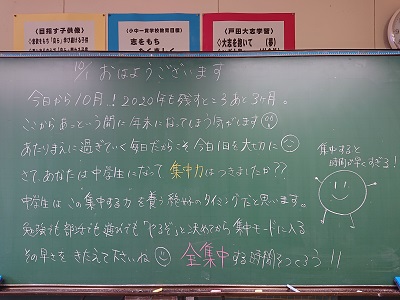 《目指す子供像》
《小中一貫学校教育目標》
志をもち
《戸田大志学習》
大志を抱いて
(夢)
10/1 おはようございます
今日から10月!2020年も残すところあと3ヶ月。
ここからあっという間に年末になってしまう気がします
あたりまえに過ぎていく毎日だからこそ今日1日を大切に
さて、あなたは中学生になって集中力はつきましたか??
中学生は“この集中する力”を養う絶好のタイミングだと思います。
勉強でも部活でも遊びでも「やるぞ」と決めてから集中モードに入る
その早さをきたえて下さいね
全集中する時間をつくろう!!
集中すると
時間が早くすぎる!